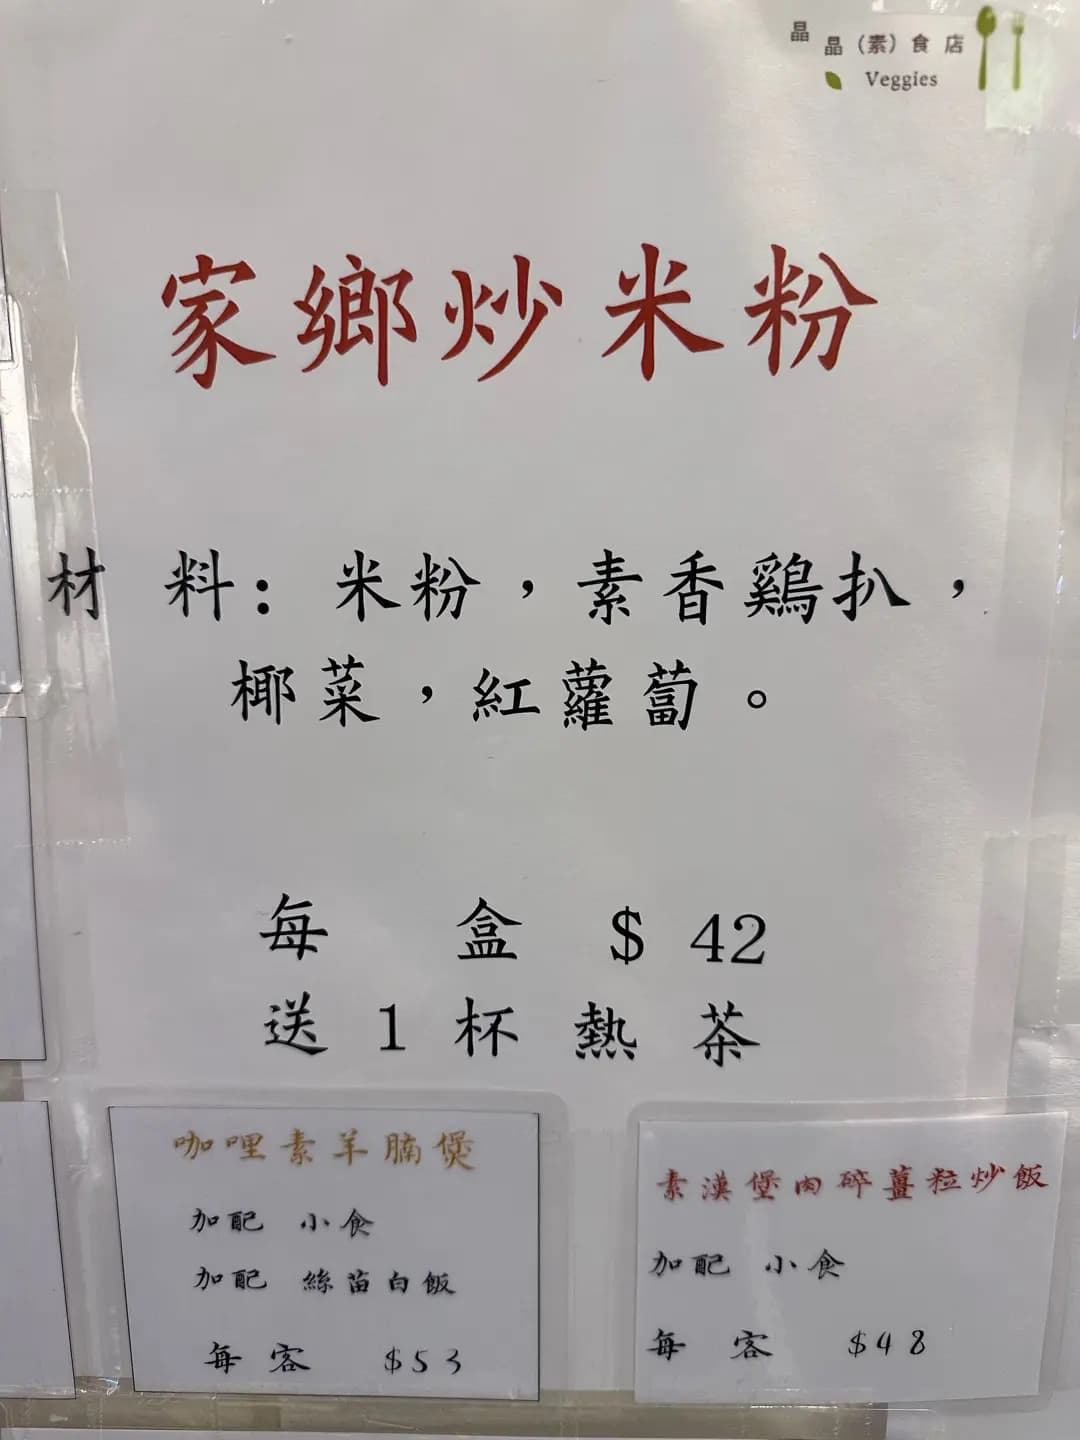 晶晶（素）食店
Veggies
家鄉炒米粉
材 料：米粉，素香鷄扒，
椰菜，紅蘿蔔。
每 盒 $ 42
送 1 杯 熱 茶
咖哩素羊腩煲
加配 小食
加配 絲苗白飯
每 客 $53
素漢堡肉碎薑粒炒飯
加配 小食
每 客 $48